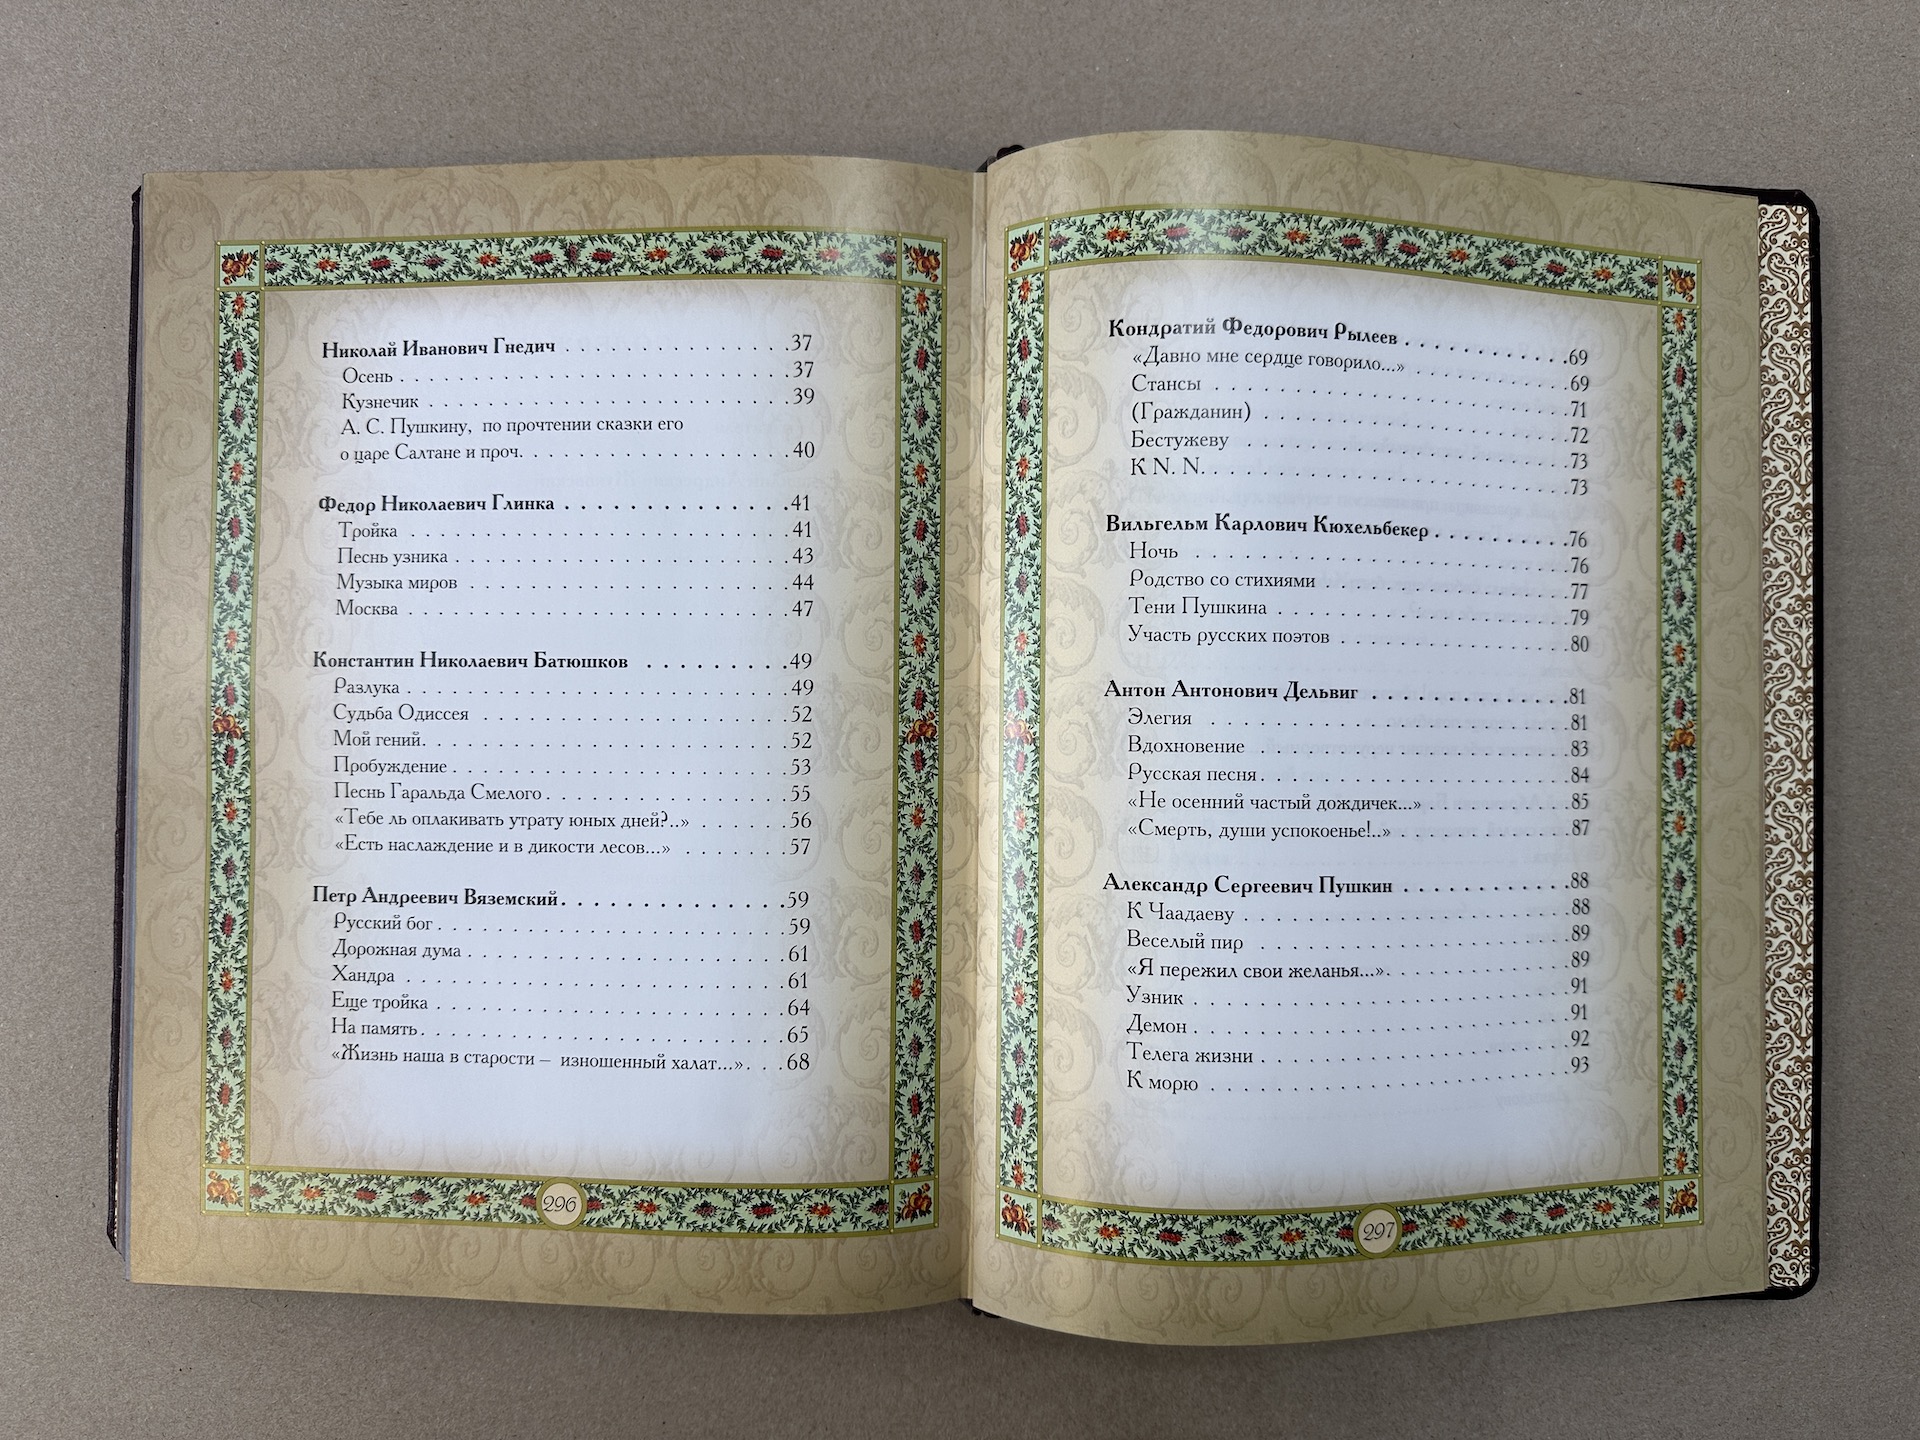 Николай Иванович Гнедич . . . . . . . . . . . . . . . . 37
Осень . . . . . . . . . . . . . . . . . . . . . . . . . . 37
Кузнечик . . . . . . . . . . . . . . . . . . . . . . . . 39
А. С. Пушкину, по прочтении сказки его
о царе Салтане и проч. . . . . . . . . . . . . . . . . . 40
Федор Николаевич Глинка . . . . . . . . . . . . . . . 41
Тройка . . . . . . . . . . . . . . . . . . . . . . . . . 41
Песнь узника . . . . . . . . . . . . . . . . . . . . . . 43
Музыка миров . . . . . . . . . . . . . . . . . . . . . 44
Москва . . . . . . . . . . . . . . . . . . . . . . . . . 47
Константин Николаевич Батюшков . . . . . . . . . 49
Разлука . . . . . . . . . . . . . . . . . . . . . . . . . 49
Судьба Одиссея . . . . . . . . . . . . . . . . . . . . 52
Мой гений. . . . . . . . . . . . . . . . . . . . . . . . 52
Пробуждение . . . . . . . . . . . . . . . . . . . . . . 53
Песнь Гаральда Смелого . . . . . . . . . . . . . . . . 55
«Тебе ль оплакивать утрату юных дней?..» . . . . . . 56
«Есть наслаждение и в дикости лесов...» . . . . . . . 57
Петр Андреевич Вяземский . . . . . . . . . . . . . . 59
Русский бог . . . . . . . . . . . . . . . . . . . . . . . 59
Дорожная дума . . . . . . . . . . . . . . . . . . . . . 61
Хандра . . . . . . . . . . . . . . . . . . . . . . . . . 61
Еще тройка . . . . . . . . . . . . . . . . . . . . . . . 64
На память . . . . . . . . . . . . . . . . . . . . . . . . 65
«Жизнь наша в старости – изношенный халат...» . . . 68
296
Кондратий Федорович Рылеев . . . . . . . . . . . . 69
«Давно мне сердце говорило...» . . . . . . . . . . . 69
Стансы . . . . . . . . . . . . . . . . . . . . . . . . . 71
(Гражданин) . . . . . . . . . . . . . . . . . . . . . . 72
Бестужеву . . . . . . . . . . . . . . . . . . . . . . . 73
К N. N. . . . . . . . . . . . . . . . . . . . . . . . . . 73
Вильгельм Карлович Кюхельбекер . . . . . . . . . . 76
Ночь . . . . . . . . . . . . . . . . . . . . . . . . . . 76
Родство со стихиями . . . . . . . . . . . . . . . . . 77
Тени Пушкина . . . . . . . . . . . . . . . . . . . . . 79
Участь русских поэтов . . . . . . . . . . . . . . . . 80
Антон Антонович Дельвиг . . . . . . . . . . . . . . 81
Элегия . . . . . . . . . . . . . . . . . . . . . . . . . 81
Вдохновение . . . . . . . . . . . . . . . . . . . . . . 83
Русская песня . . . . . . . . . . . . . . . . . . . . . 84
«Не осенний частый дождичек...» . . . . . . . . . . 85
«Смерть, души успокоенье!..» . . . . . . . . . . . . 87
Александр Сергеевич Пушкин . . . . . . . . . . . . 88
К Чаадаеву . . . . . . . . . . . . . . . . . . . . . . . 88
Веселый пир . . . . . . . . . . . . . . . . . . . . . . 89
«Я пережил свои желанья...» . . . . . . . . . . . . . 89
Узник . . . . . . . . . . . . . . . . . . . . . . . . . . 91
Демон . . . . . . . . . . . . . . . . . . . . . . . . . . 91
Телега жизни . . . . . . . . . . . . . . . . . . . . . . 92
К морю . . . . . . . . . . . . . . . . . . . . . . . . . 93
297